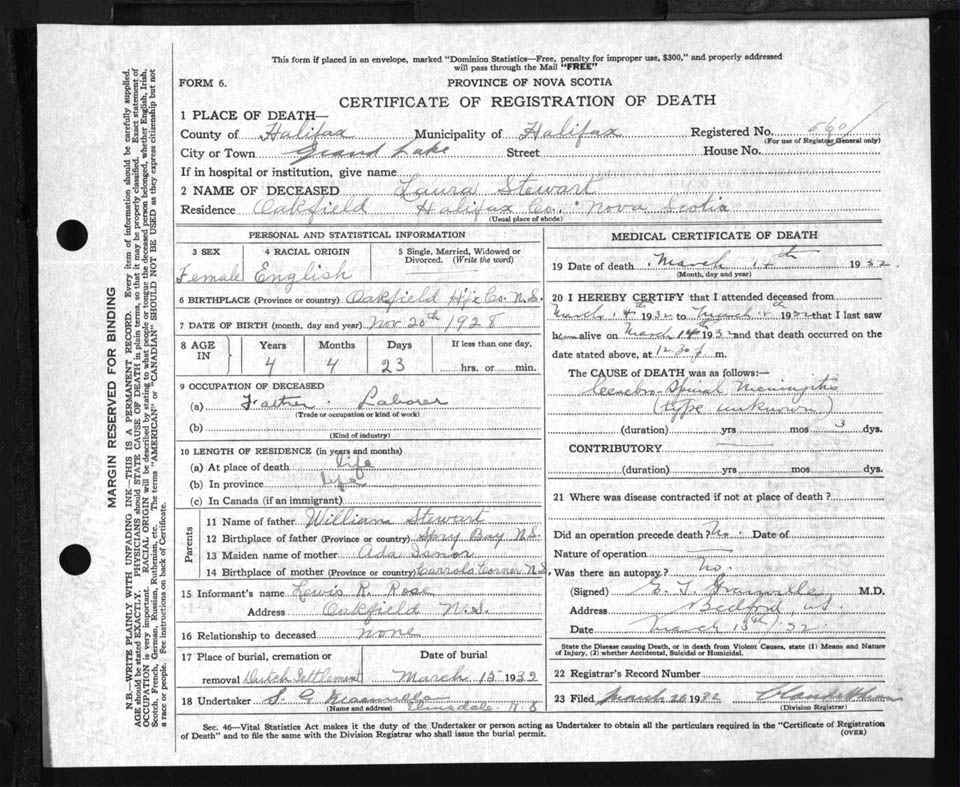 This form if placed in an envelope, marked "Dominion Statistics—Free, penalty for improper use, $300," and properly addressed
will pass through the Mail "FREE"
FORM 6.
PROVINCE OF NOVA SCOTIA
CERTIFICATE OF REGISTRATION OF DEATH
1 PLACE OF DEATH—
County of Halifax Municipality of Halifax Registered No.
(For use of Registrar General only)
City or Town Grand Lake Street House No.
If in hospital or institution, give name
2 NAME OF DECEASED Laura Stewart
Residence Oakfield Halifax Co. Nova Scotia
(Usual place of abode)
PERSONAL AND STATISTICAL INFORMATION
3 SEX 4 RACIAL ORIGIN 5 Single, Married, Widowed or Divorced. (Write the word)
Female English
6 BIRTHPLACE (Province or country) Oakfield Hfx Co. N.S.
7 DATE OF BIRTH (month, day and year) Nov 20th 1928
8 AGE IN Years Months Days If less than one day,
4 4 23 hrs. or min.
9 OCCUPATION OF DECEASED
(a) Father. Laborer
(Trade or occupation or kind of work)
(b)
(Kind of industry)
10 LENGTH OF RESIDENCE (in years and months)
(a) At place of death life
(b) In province life
(c) In Canada (if an immigrant)
Parents
11 Name of father William Stewart
12 Birthplace of father (Province or country) Spry Bay N.S.
13 Maiden name of mother Ada Isnor
14 Birthplace of mother (Province or country) Carrols Corner N.S.
15 Informant's name Lewis R. Rose
Address Oakfield N.S.
16 Relationship to deceased none
17 Place of burial, cremation or removal Dutch Settlement
Date of burial March 15 1932
18 Undertaker S. G.
(Name and address) Elmsdale N S
MEDICAL CERTIFICATE OF DEATH
19 Date of death March 14th 1932
(Month, day and year)
20 I HEREBY CERTIFY that I attended deceased from
March 14th 1932 to March 14th 1932 that I last saw
alive on March 14th 1932 and that death occurred on the
date stated above, at 12.30 m.
The CAUSE of DEATH was as follows:—
Cerebro Spinal Meningitis
(type unknown)
(duration) yrs mos 3 dys.
CONTRIBUTORY
(duration) yrs. mos. dys.
21 Where was disease contracted if not at place of death?
Did an operation precede death? No. Date of
Nature of operation
Was there an autopsy? No.
(Signed) M.D.
Address Bedford, NS
Date March 15th/32
State the Disease causing Death, or in death from Violent Causes, state (1) Means and Nature
of Injury, (2) whether Accidental, Suicidal or Homicidal.
22 Registrar's Record Number
23 Filed March 26 1932
(Division Registrar)
Sec. 46—Vital Statistics Act makes it the duty of the Undertaker or person acting as Undertaker to obtain all the particulars required in the "Certificate of Registration
of Death" and to file the same with the Division Registrar who shall issue the burial permit.
(OVER)
MARGIN RESERVED FOR BINDING
N.B.—WRITE PLAINLY WITH UNFADING INK—THIS IS A PERMANENT RECORD. Every item of information should be carefully supplied.
AGE should be stated EXACTLY. PHYSICIANS should STATE CAUSE OF DEATH in plain terms, so that it may be properly classified. Exact statement of
OCCUPATION is very important. RACIAL ORIGIN will be described by stating to what people or tongue the deceased person belonged, whether English, Irish,
Scotch, French, German, Russian, Ruthenian, etc. The terms "AMERICAN" or "CANADIAN" SHOULD NOT BE USED as they express citizenship but not
a race or people. See instructions on back of Certificate.